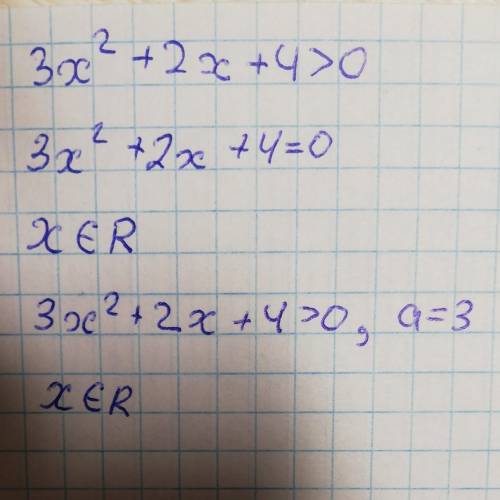 3x² + 2x + 4 > 0
3x² + 2x + 4 = 0
x ∈ R
3x² + 2x + 4 > 0, a = 3
x ∈ R